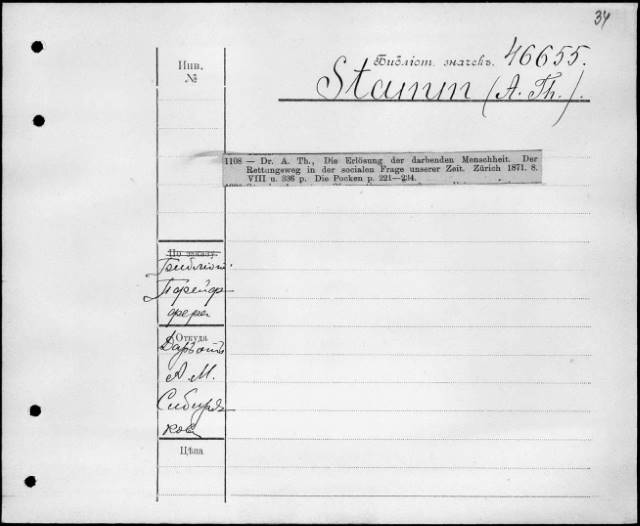 34
Инв.
№
Библіот. значекъ. 46655.
Stamm (A. Th.).
1108 — Dr. A. Th., Die Erlösung der darbenden Menschheit. Der
Rettungsweg in der socialen Frage unserer Zeit. Zürich 1871. 8.
VIII u. 336 p. Die Pocken p. 221—234.
По заказу.
Откуда
Даръ отъ
А. М.
Сибиря-
кова
Цѣна